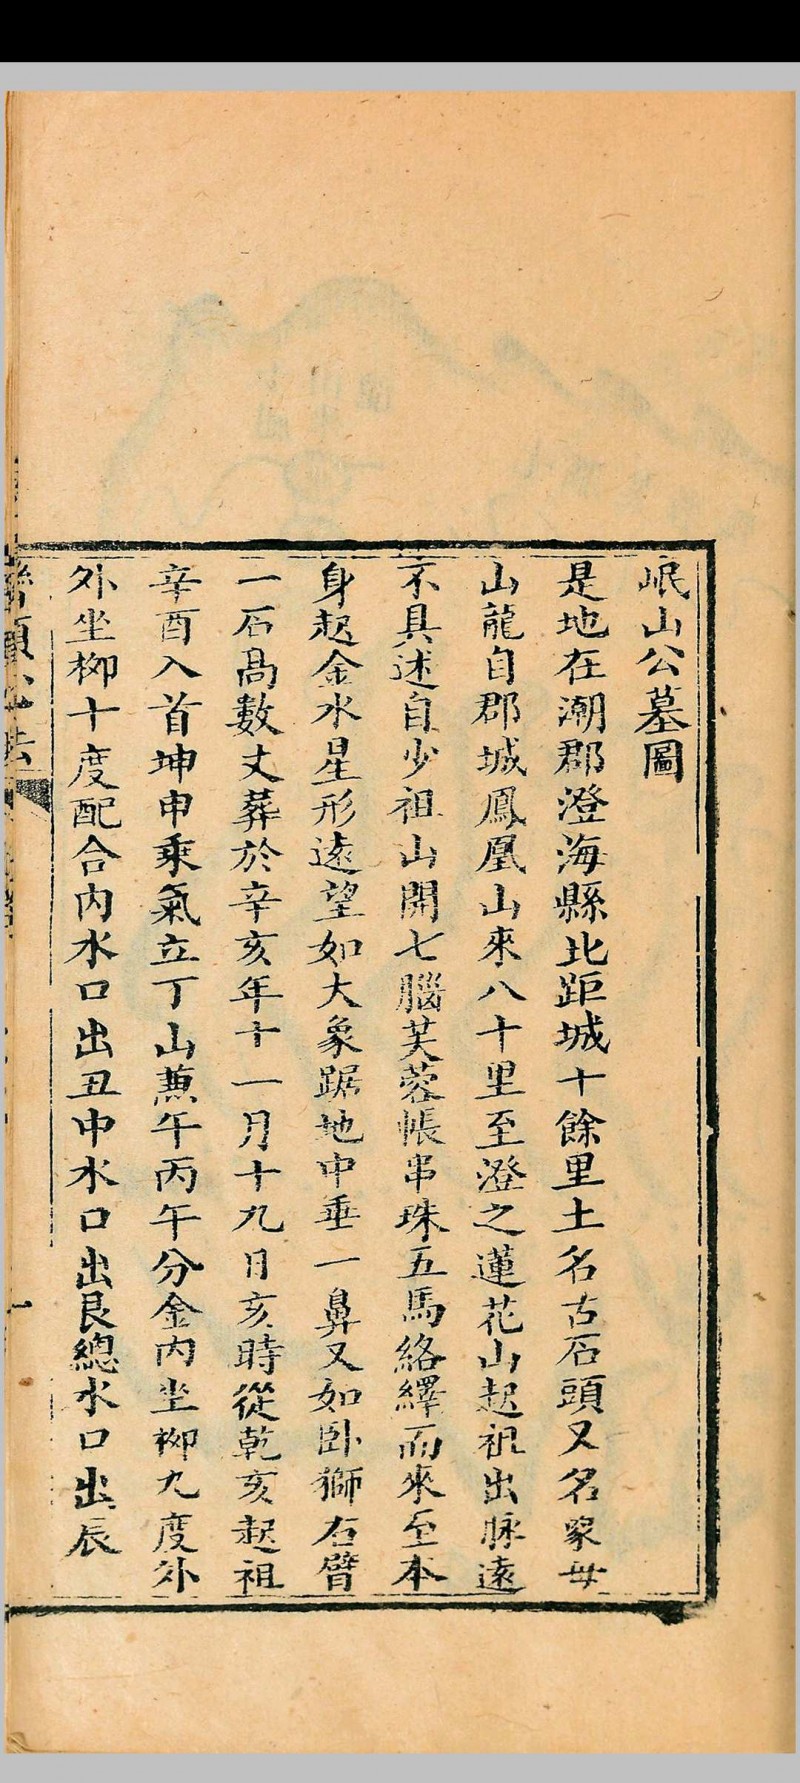 岷山公墓圖
是地在潮郡澄海縣北距城十餘里土名古石頭又名象母
山龍自郡城鳳凰山來八十里至澄之蓮花山起祖出脉遠
不具述自少祖山開七腦芙蓉帳串珠五馬絡繹而來至本
身起金水星形遠望如大象踞地中垂一鼻又如卧獅右臂
一石高數丈葬於辛亥年十一月十九日亥時從乾亥起祖
辛酉入首坤申乘氣立丁山兼午丙午分金內坐柳九度外
外坐柳十度配合內水口出丑中水口出艮總水口出辰